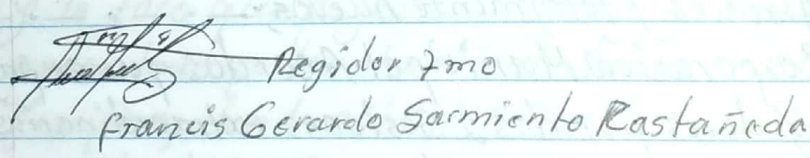 Regidor 7mo
Francis Gerardo Sarmiento Rastañeda